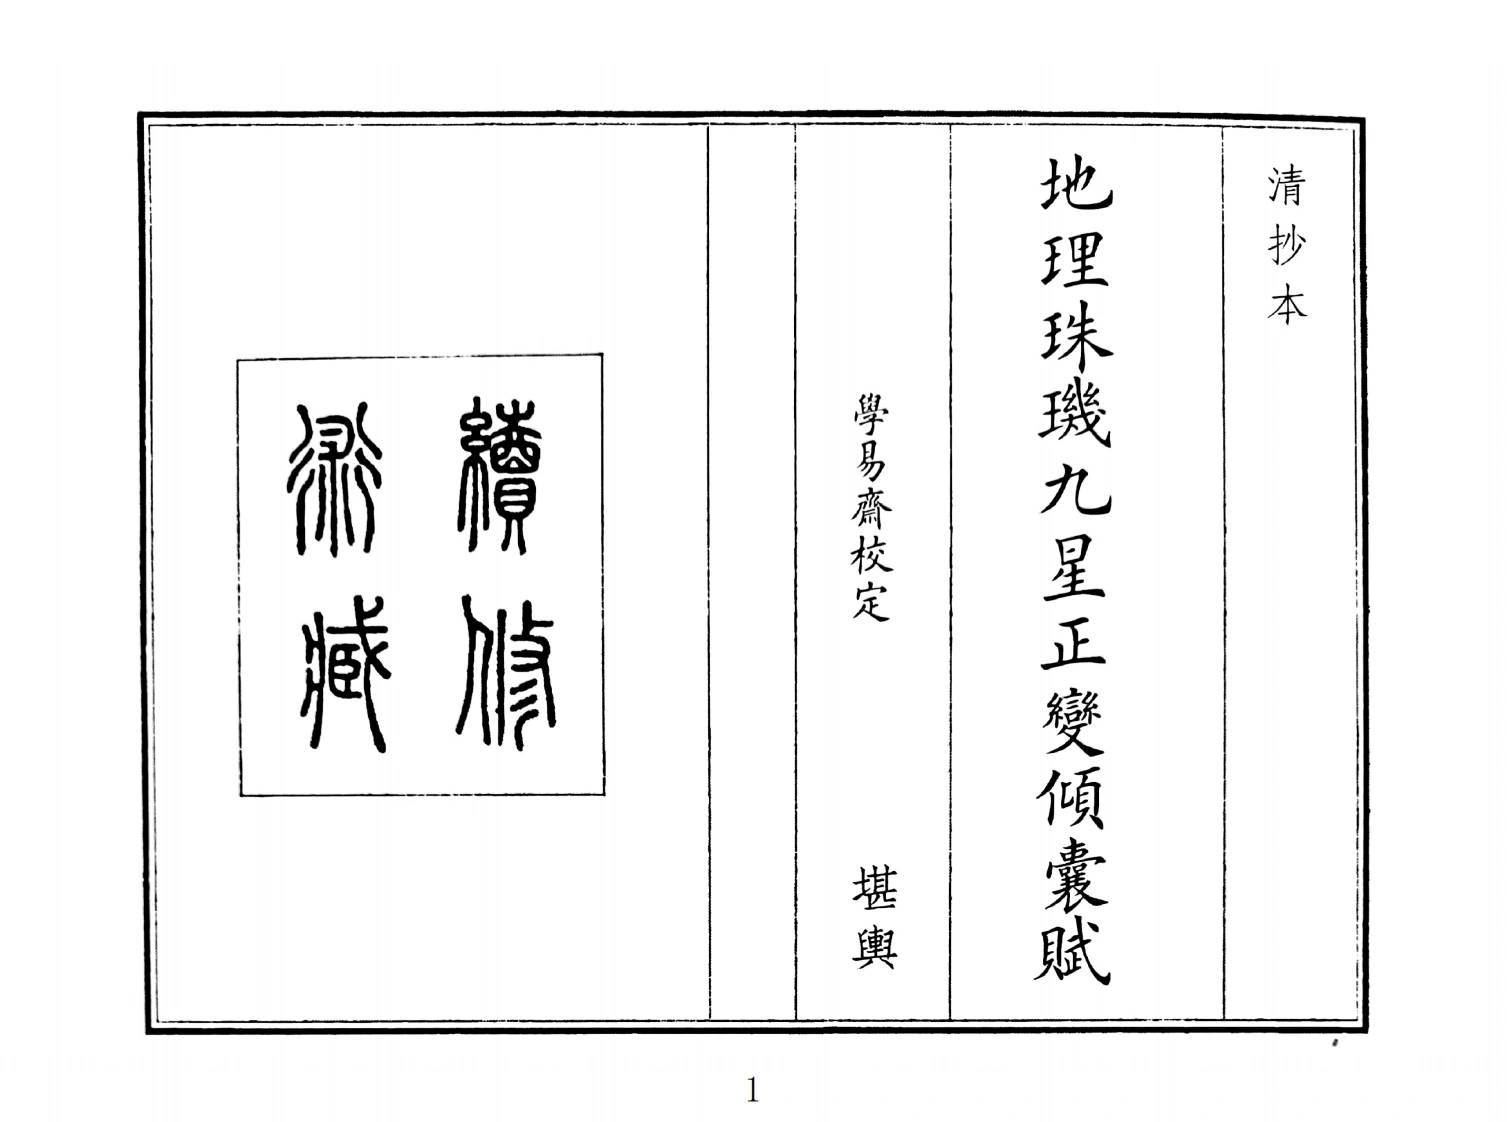 清抄本
地理珠璣九星正變傾囊賦
學易齋校定 堪輿
續修
術藏
1